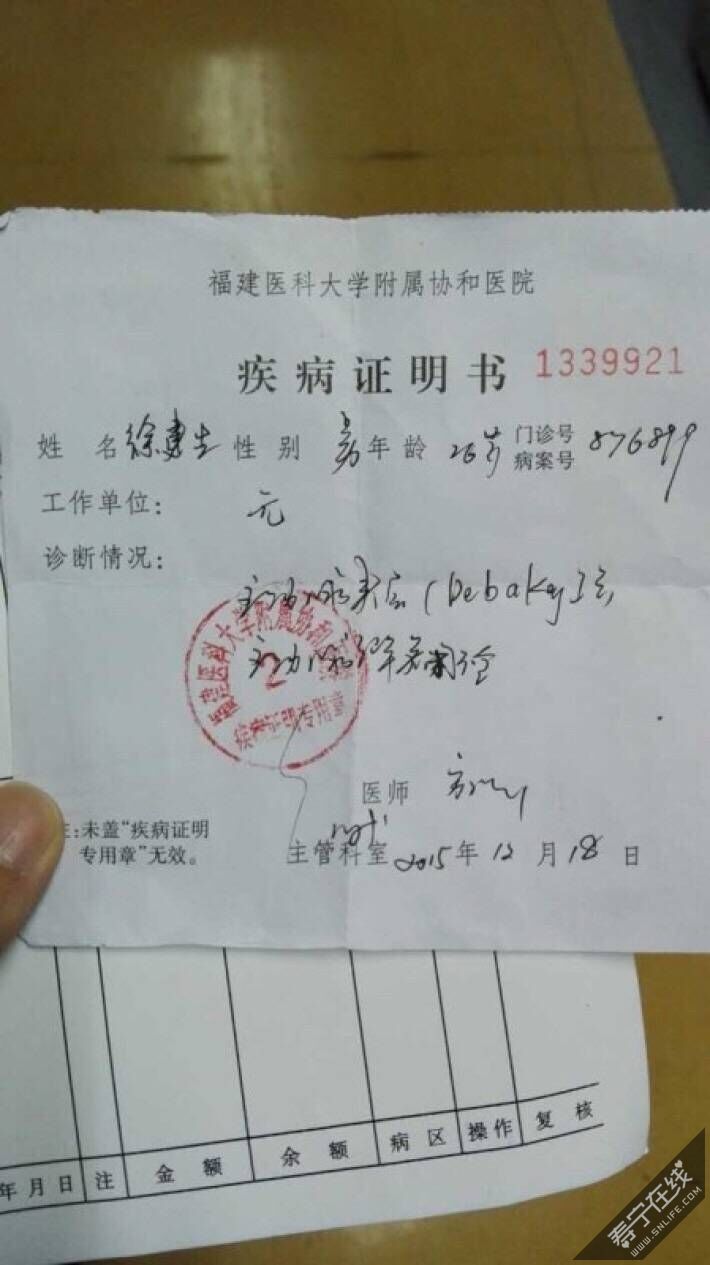 福建医科大学附属协和医院
疾病证明书 1339921
姓 名 徐 性 别 男 年 龄 26岁 门诊号
病案号 876899
工作单位: 无
诊断情况:
主动脉夹层(Debakey I型)
主动脉瓣关闭不全
福建医科大学附属协和医院
2
疾病证明专用章
医师
注:未盖“疾病证明
专用章”无效。
主管科室 2015年12月18日
年月日 注 金额 余额 病区 操作 复核
寿宁在线
WWW.SNLIFE.COM